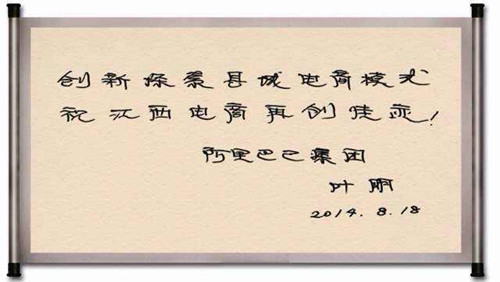 创新探索县域电商模式
祝江西电商再创佳迹!
阿里巴巴集团
叶朋
2014.8.18